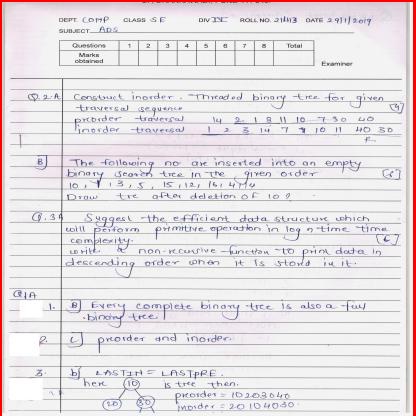 DEPT. COMP CLASS SE DIV II ROLL NO. DATE 29/1/2019
SUBJECT ADS
Questions 1 2 3 4 5 6 7 8 Total
Marks obtained
Examiner
Q.2.A Construct inorder. Threaded binary tree for given
traversal sequence [4]
preorder traversal 14 2 1 3 11 10 7 30 40
inorder traversal 1 2 3 14 7 10 11 40 30
B] The following no are inserted into an empty
binary search tree in the given order
10, 1, 3, 5, 15, 12, 16,
Draw tre after deletion of 10?
Q.3A Suggest the efficient data structure which
will perform primitive operation in log n time time
complexity. [6]
write a non-recursive function to print data in
descending order when it is stord in it.
Q1A
1. B] Every complete binary tree is also a full
binary tree.
2. c] preorder and inorder.
3. b] LASTIN = LASTPRE.
here 10 is tree then.
20 30 preorder = 10203040
inorder = 20104030